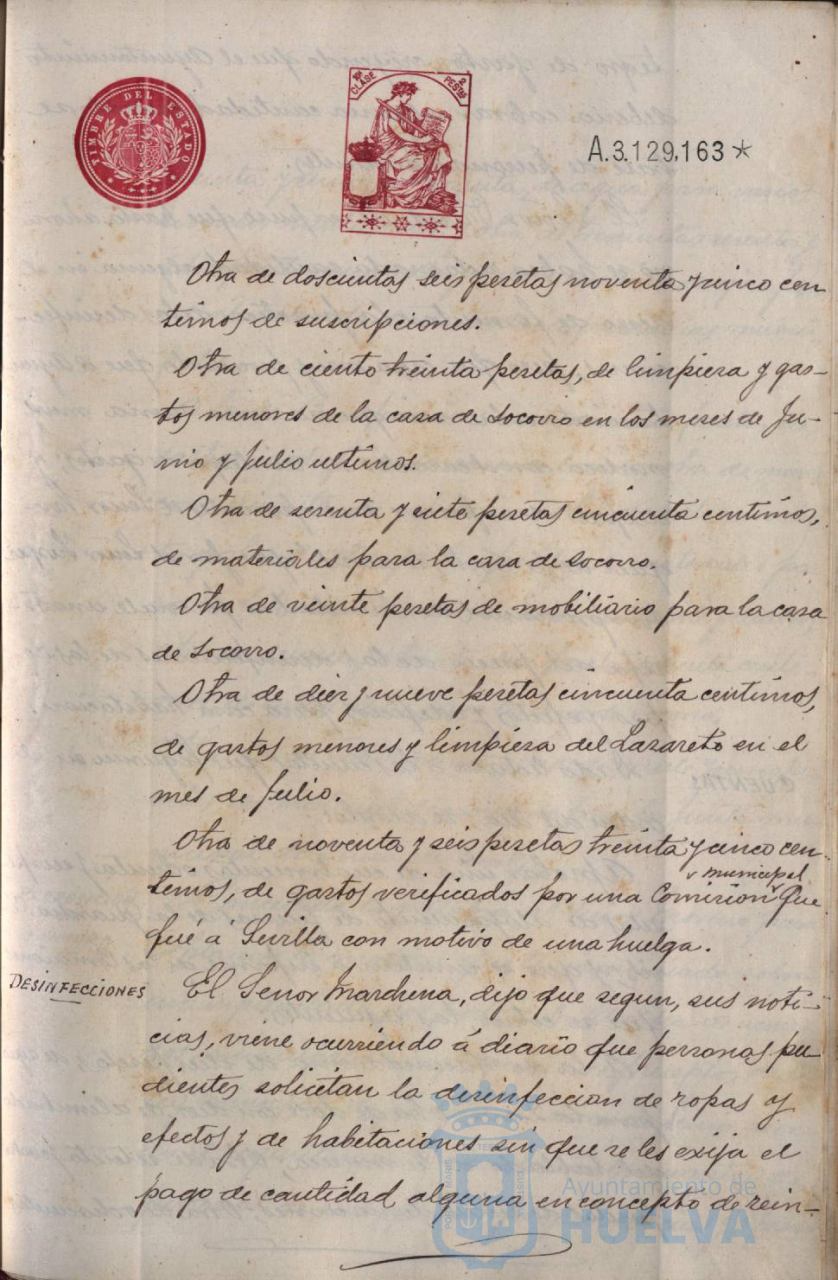 TIMBRE DEL ESTADO
10ª CLASE
2 PESETAS
A.3.129,163*
Otra de doscientas seis pesetas noventa y cinco cen-
timos de suscripciones.
Otra de ciento treinta pesetas, de limpieza y gas-
tos menores de la casa de socorro en los meses de Ju-
nio y Julio ultimos.
Otra de setenta y siete pesetas cincuenta centimos,
de materiales para la casa de socorro.
Otra de veinte pesetas de mobiliario para la casa
de socorro.
Otra de diez y nueve pesetas cincuenta centimos,
de gastos menores y limpieza del Lazareto en el
mes de Julio.
Otra de noventa y seis pesetas treinta y cinco cen-
municipal
timos, de gastos verificados por una Comision que
fué á Sevilla con motivo de una huelga.
DESINFECCIONES
El Señor Marchena, dijo que segun, sus noti-
cias, viene ocurriendo á diario que personas pu
dientes solicitan la desinfeccion de ropas y
efectos y de habitaciones sin que se les exija el
pago de cantidad alguna en concepto de rein-
Ayuntamiento de
HUELVA